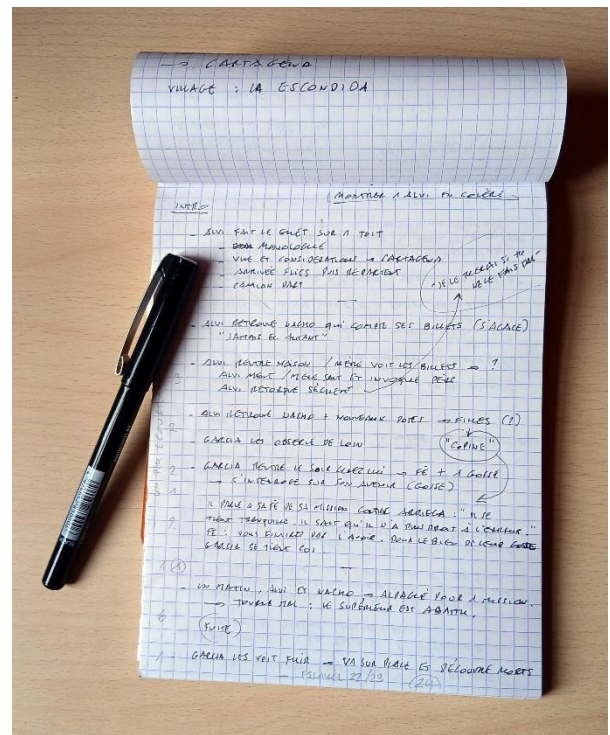 → CARTAGENA
VILLAGE : LA ESCONDIDA
MONTRER 1 ALVI EN COLÈRE
INTRO
- ALVI FAIT LE GUÉT SUR 1 TOIT
- MONOLOGUE
- VUE ET CONSIDERATIONS → CARTAGENA
- ARRIVÉE FLICS PUIS REPARTENT
- CAMION PART
"JE LE FERAI SI TU NE LE FAIS PAS"
- ALVI RETROUVE NACHO QUI COMPTE SES BILLETS (S'ACHÈTE)
"JAMAIS EL"
- ALVI RENTRE MAISON / MÈRE VOIT LES BILLETS → ?
ALVI MENT / MÈRE SAIT ET INVOQUE PÈRE
ALVI RÉTORQUE SÈCHEMENT
- ALVI RETROUVE NACHO + NOUVEAUX POTES → FILLES (?)
"COPINE"
- GARCIA LES OBSERVE DE LOIN
- GARCIA RENTRE LE SOIR CHEZ LUI → FÉ + 1 GOSSE
→ S'INTERROGE SUR SON AVENIR (GOSSE)
IL PARLE A SA FÉ DE SA MISSION CONTRE ARRIEGA : "IL SE
TIENT TRANQUILLE. IL SAIT QU'IL N'A PAS DROIT À L'ERREUR."
FÉ : VOUS FINIREZ PAR L'AVOIR. POUR LE BIEN DE LEUR GOSSE
GARCIA SE TIENT COI
- UN MATIN, ALVI ET NACHO → ALPAGUÉ POUR 1 MISSION.
→ TOURNE MAL : LE SUPÉRIEUR EST ABATTU.
(FUITE)
- GARCIA LES VOIT FUIR → VA SUR PLACE ET DÉCOUVRE MORTS
22/23